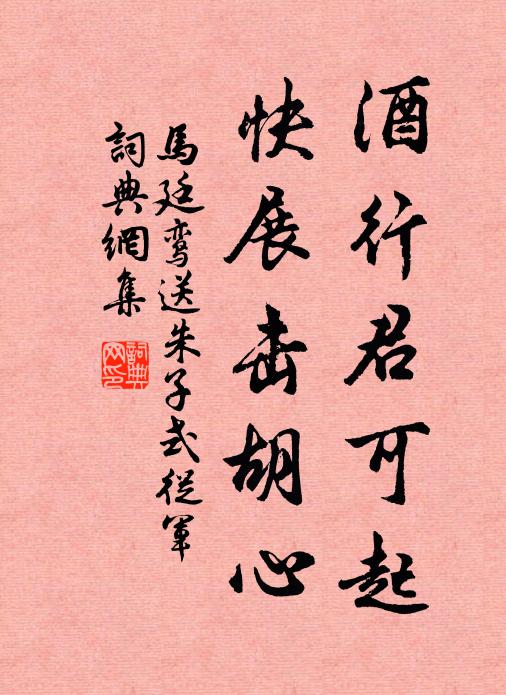 酒行君可起
快展击胡心
馬廷鸾送朱子式從軍
詞典網集
詞典网印